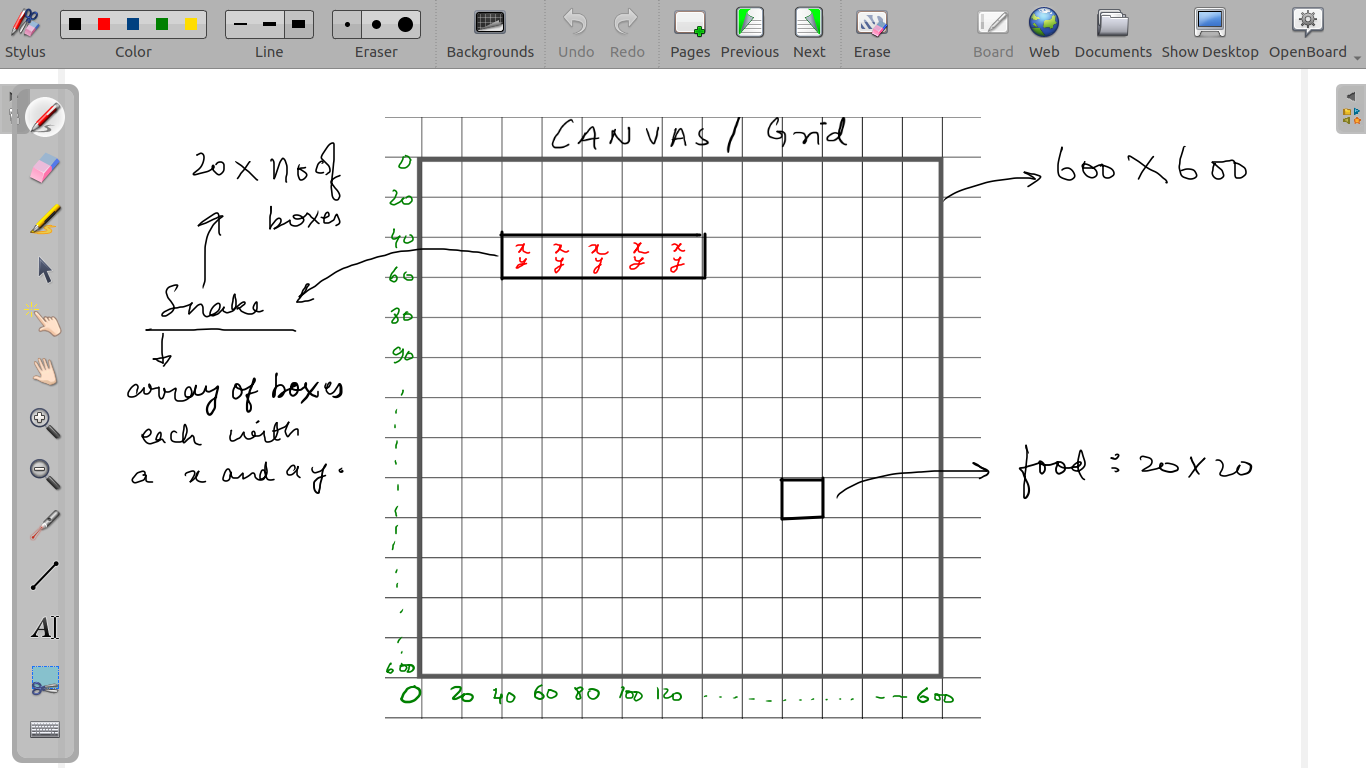 Stylus
Color
Line
Eraser
Backgrounds
Undo
Redo
Pages
Previous
Next
Erase
Board
Web
Documents
Show Desktop
OpenBoard
CANVAS / Grid
20 X no of
boxes
Snake
array of boxes
each with
a x and a y.
0
20
40
60
80
90
600
x x x x x
y y y y y
600 X 600
food : 20 X 20
0 20 40 60 80 100 120 600